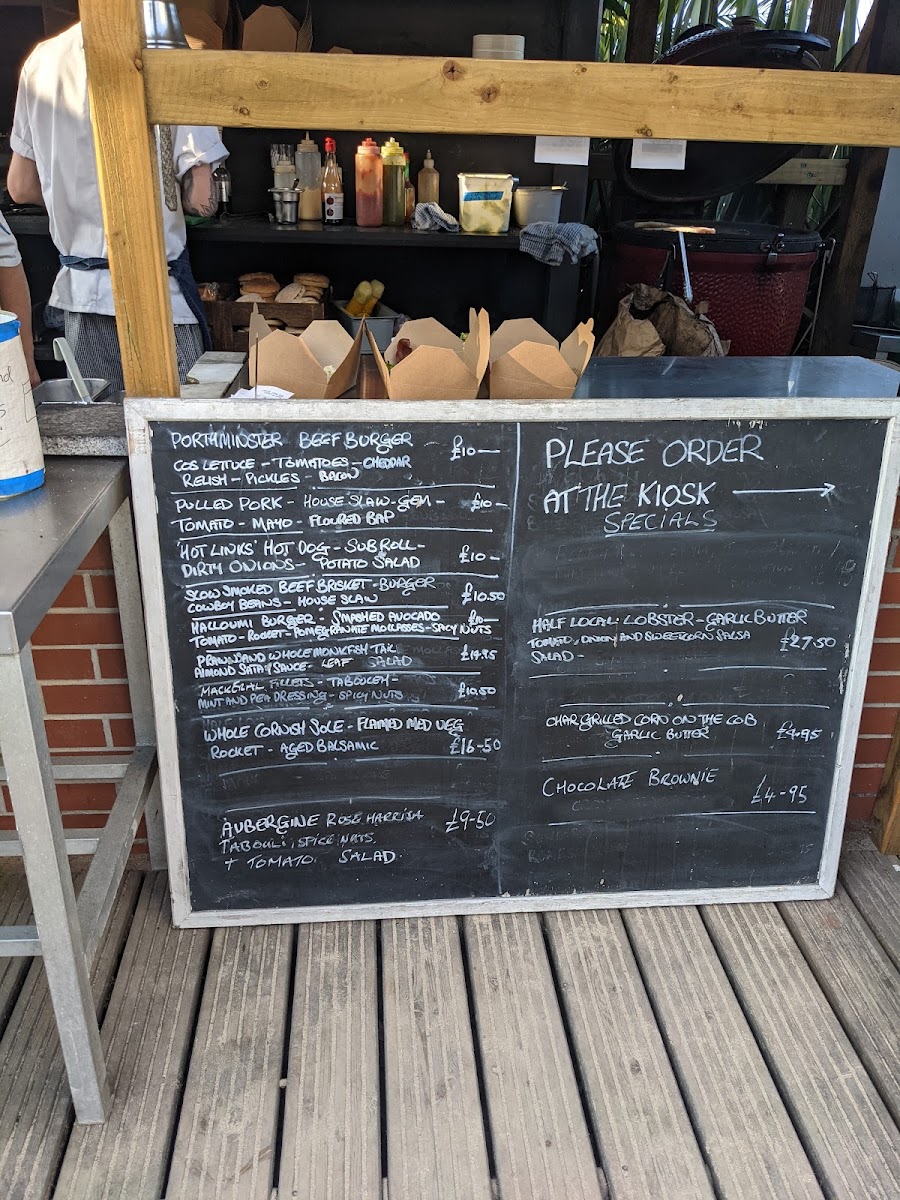 PORTHMINSTER BEEF BURGER £10—
COS LETTUCE - TOMATOES - CHEDDAR
RELISH - PICKLES - BACON
PULLED PORK - HOUSE SLAW - GEM - £10—
TOMATO - MAYO - FLOURED BAP
'HOT LINKS' HOT DOG - SUB ROLL -
DIRTY ONIONS - POTATO SALAD £10—
SLOW SMOKED BEEF BRISKET - BURGER
COWBOY BEANS - HOUSE SLAW £10.50
HALLOUMI BURGER - SMASHED AVOCADO £10—
TOMATO - ROCKET - POMEGRANATE MOLLASSES - SPICY NUTS
PRAWN AND WHOLE MONKFISH TAIL
ALMOND SATAY SAUCE - LEAF SALAD
MACKERAL FILLETS - TABOULEH -
MINT AND PEA DRESSING - SPICY NUTS £10.50
WHOLE CORNISH SOLE - FLAMED MED VEG
ROCKET - AGED BALSAMIC £16-50
AUBERGINE ROSE HARRISA £9-50
TABOULI, SPICE NUTS,
+ TOMATO SALAD
PLEASE ORDER
AT THE KIOSK →
SPECIALS
HALF LOCAL LOBSTER - GARLIC BUTTER
TOMATO, ONION AND SWEETCORN SALSA £27.50
SALAD -
CHARGRILLED CORN ON THE COB
GARLIC BUTTER £4.95
CHOCOLATE BROWNIE
£4-95